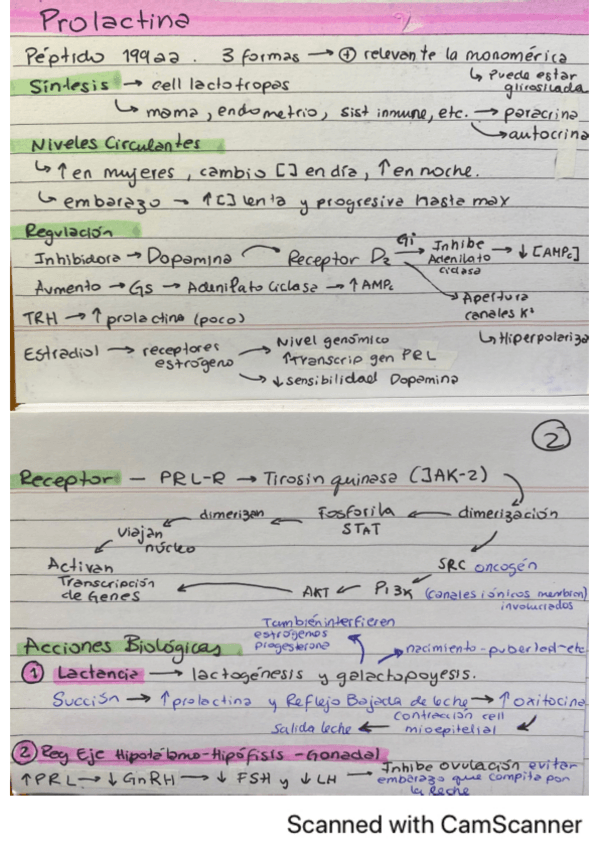 Prolactina
Péptido 199 aa. 3 formas → ⊕ relevante la monomérica
↳ Puede estar glicosilada
Síntesis → cell lactotropas
↳ mama, endometrio, sist inmune, etc. → paracrina
→ autocrina
Niveles Circulantes
↳ ↑ en mujeres, cambio [] en día, ↑ en noche.
↳ embarazo → ↑[] lenta y progresiva hasta max
Regulación
Inhibidora → Dopamina → Receptor D2 Gi → Inhibe Adenilato ciclasa → ↓ [AMPc]
→ Apertura canales K+
↳ Hiperpolariza
Aumento → Gs → Adenilato Ciclasa → ↑ AMPc
TRH → ↑ prolactina (poco)
Estradiol → receptores estrógeno → Nivel genómico
↑Transcrip gen PRL
→ ↓ sensibilidad Dopamina
2
Receptor - PRL-R → Tirosin quinasa (JAK-2)
dimerización → Fosforila STAT → dimerizan → Viajan núcleo
Activan Transcripción de Genes
SRC oncogén
Pi3K → AKT →
(canales iónicos membran) involucrados
Acciones Biológicas
También interfieren estrógenos progesterona
nacimiento-pubertad-etc
① Lactancia → lactogénesis y galactopoyesis.
Succión → ↑prolactina y Reflejo Bajada de leche → ↑ oxitocina
Salida leche ← contracción cell mioepitelial
② Reg Eje Hipotálamo-Hipófisis-Gonadal
↑PRL → ↓ GnRH → ↓ FSH y ↓ LH → Inhibe ovulación evitar
embarazo que compita por
la leche
Scanned with CamScanner